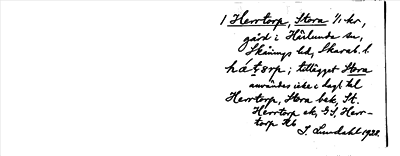 1 Herrtorp, Stora 1/1 kr,
gård i Härlunda sn,
Skånings hd, Skarab. l
hǽtǝrp; tillägget Stora
användes icke i dagl. tal
Herrtorp, Stora bsk, St.
Herrtorp ek, GS, Herr-
torp Hb
J. Lundahl 1922.